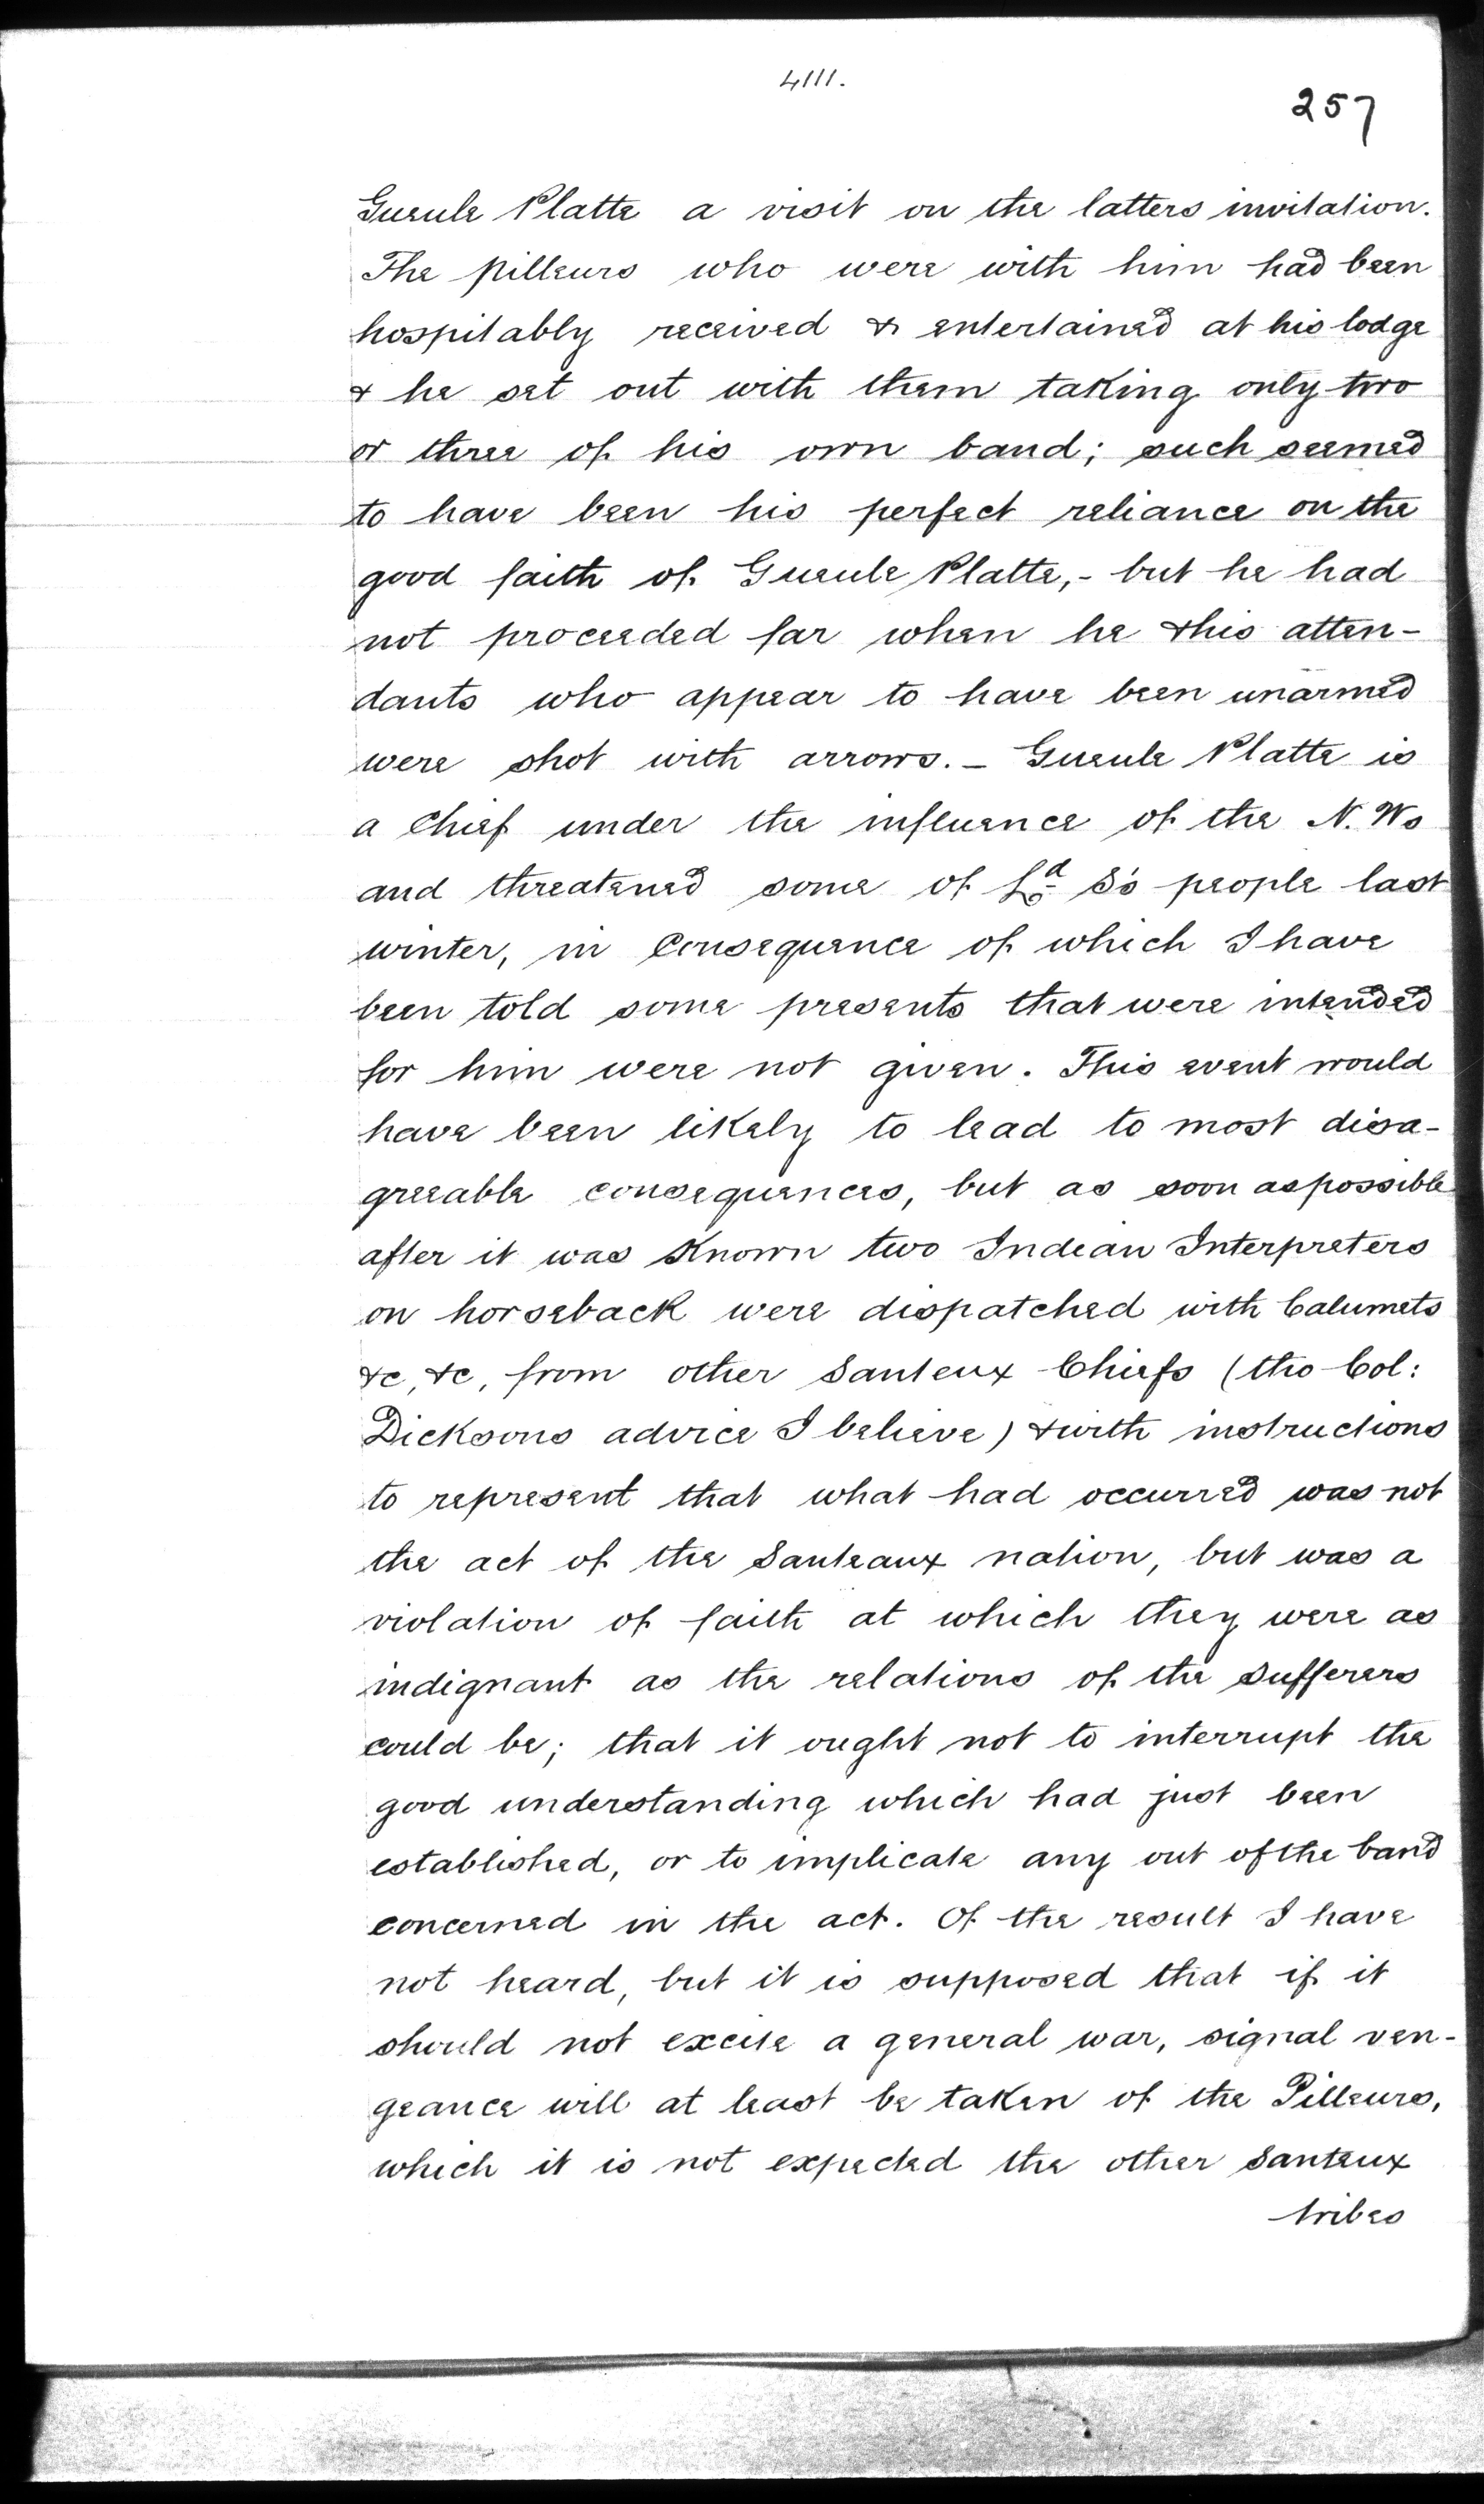 4111.
257
Gueule Platte a visit on the latters invitation.
The pilleurs who were with him had been
hospitably received & entertained at his lodge
& he set out with them taking only two
or three of his own band; such seemed
to have been his perfect reliance on the
good faith of Gueule Platte,- but he had
not proceeded far when he & his atten-
dants who appear to have been unarmed
were shot with arrows. - Gueule Platte is
a Chief under the influence of the N. Ws
and threatened some of Ld S's people last
winter, in Consequence of which I have
been told some presents that were intended
for him were not given. This event would
have been likely to lead to most disa-
greeable consequences, but as soon as possible
after it was Known two Indian Interpreters
on horseback were dispatched with Calumets
&c, &c, from other Santeux Chiefs (tho Col:
Dicksons advice I believe) & with instructions
to represent that what had occurred was not
the act of the Santeaux nation, but was a
violation of faith at which they were as
indignant as the relations of the sufferers
could be; that it ought not to interrupt the
good understanding which had just been
established, or to implicate any out of the band
concerned in the act. Of the result I have
not heard, but it is supposed that if it
should not excite a general war, signal ven-
geance will at least be taken of the Pilleurs,
which it is not expected the other Santeux
tribes